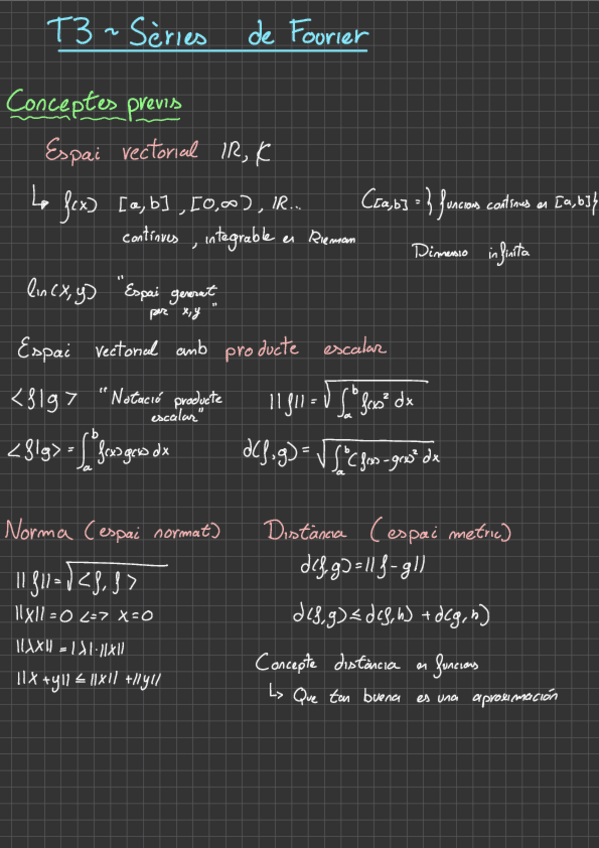 T3 ~ Sèries de Fourier
Conceptes previs
Espai vectorial IR, K
↳ f(x) [a,b] , [0,∞) , IR... C[a,b] = } funcions contínues en [a,b]}
contínues , integrable en Riemann
Dimensió infinita
lin(x,y) "Espai generat
per x,y"
Espai vectorial amb producte escalar
<f|g> "Notació producte
escalar"
||f|| = √∫_a^b f(x)² dx
<f|g> = ∫_a^b f(x)g(x) dx d(f,g) = √∫_a^b (f(x)-g(x)² dx
Norma (espai normat) Distància (espai metric)
||f|| = √<f, f> d(f,g) = ||f - g||
||x|| = 0 <=> x = 0 d(f,g) ≤ d(f,h) + d(g,h)
||λx|| = |λ|·||x||
||x + y|| ≤ ||x|| + ||y||
Concepte distància en funcions
↳ Que tan buena es una aproximación